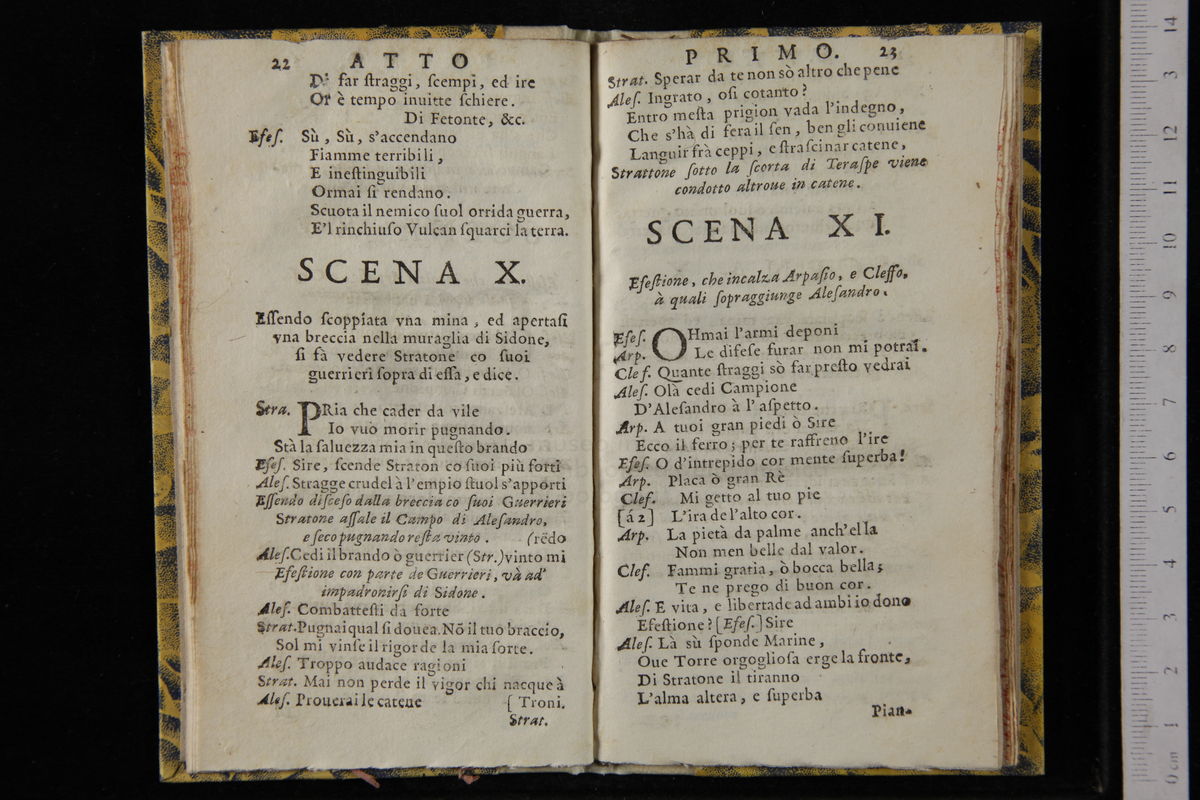 22 ATTO
Di far ſtraggi, ſcempi, ed ire
Or è tempo inuitte ſchiere.
Di Fetonte, &c.
Efeſ. Sù, Sù, s'accendano
Fiamme terribili,
E ineſtinguibili
Ormai ſi rendano.
Scuota il nemico ſuol orrida guerra,
E'l rinchiuſo Vulcan ſquarci la terra.
SCENA X.
Eſſendo ſcoppiata vna mina, ed apertaſi
vna breccia nella muraglia di Sidone,
ſi fà vedere Stratone co ſuoi
guerrieri ſopra di eſſa, e dice.
Stra. PRia che cader da vile
Io vuò morir pugnando.
Stà la ſaluezza mia in queſto brando
Efeſ. Sire, ſcende Straton co ſuoi più forti
Aleſ. Stragge crudel à l'empio ſtuol s'apporti
Eſſendo diſceſo dalla breccia co ſuoi Guerrieri
Stratone aſſale il Campo di Aleſandro,
e ſeco pugnando reſta vinto. (rēdo
Aleſ. Cedi il brando ò guerrier (Str.) vinto mi
Efeſtione con parte de Guerrieri, và ad'
impadronirſi di Sidone.
Aleſ. Combatteſti da forte
Strat. Pugnai qual ſi douea. Nō il tuo braccio,
Sol mi vinſe il rigor de la mia ſorte.
Aleſ. Troppo audace ragioni
Strat. Mai non perde il vigor chi nacque à
Aleſ. Prouerai le catene [Troni.
Strat.
PRIMO. 23
Strat. Sperar da te non sò altro che pene
Aleſ. Ingrato, oſi cotanto?
Entro meſta prigion vada l'indegno,
Che s'hà di fera il ſen, ben gli conuiene
Languir frà ceppi, e ſtraſcinar catene,
Strattone ſotto la ſcorta di Teraſpe viene
condotto altroue in catene.
SCENA XI.
Efeſtione, che incalza Arpaſio, e Cleſſo,
à quali ſopraggiunge Aleſandro.
Efeſ. OHmai l'armi deponi
Arp. Le difeſe furar non mi potrai.
Cleſ. Quante ſtraggi sò far preſto vedrai
Aleſ. Olà cedi Campione
D'Aleſandro à l'aſpetto.
Arp. A tuoi gran piedi ò Sire
Ecco il ferro; per te raffreno l'ire
Efeſ. O d'intrepido cor mente ſuperba!
Arp. Placa ò gran Rè
Cleſ. Mi getto al tuo pie
[á 2] L'ira de l'alto cor.
Arp. La pietà da palme anch'ella
Non men belle dal valor.
Cleſ. Fammi gratia, ò bocca bella;
Te ne prego di buon cor.
Aleſ. E vita, e libertade ad ambi io dono
Efeſtione? [Efeſ.] Sire
Aleſ. Là sù ſponde Marine,
Oue Torre orgoglioſa erge la fronte,
Di Stratone il tiranno
L'alma altera, e ſuperba
Pian-
0 cm 1 2 3 4 5 6 7 8 9 10 11 12 13 14